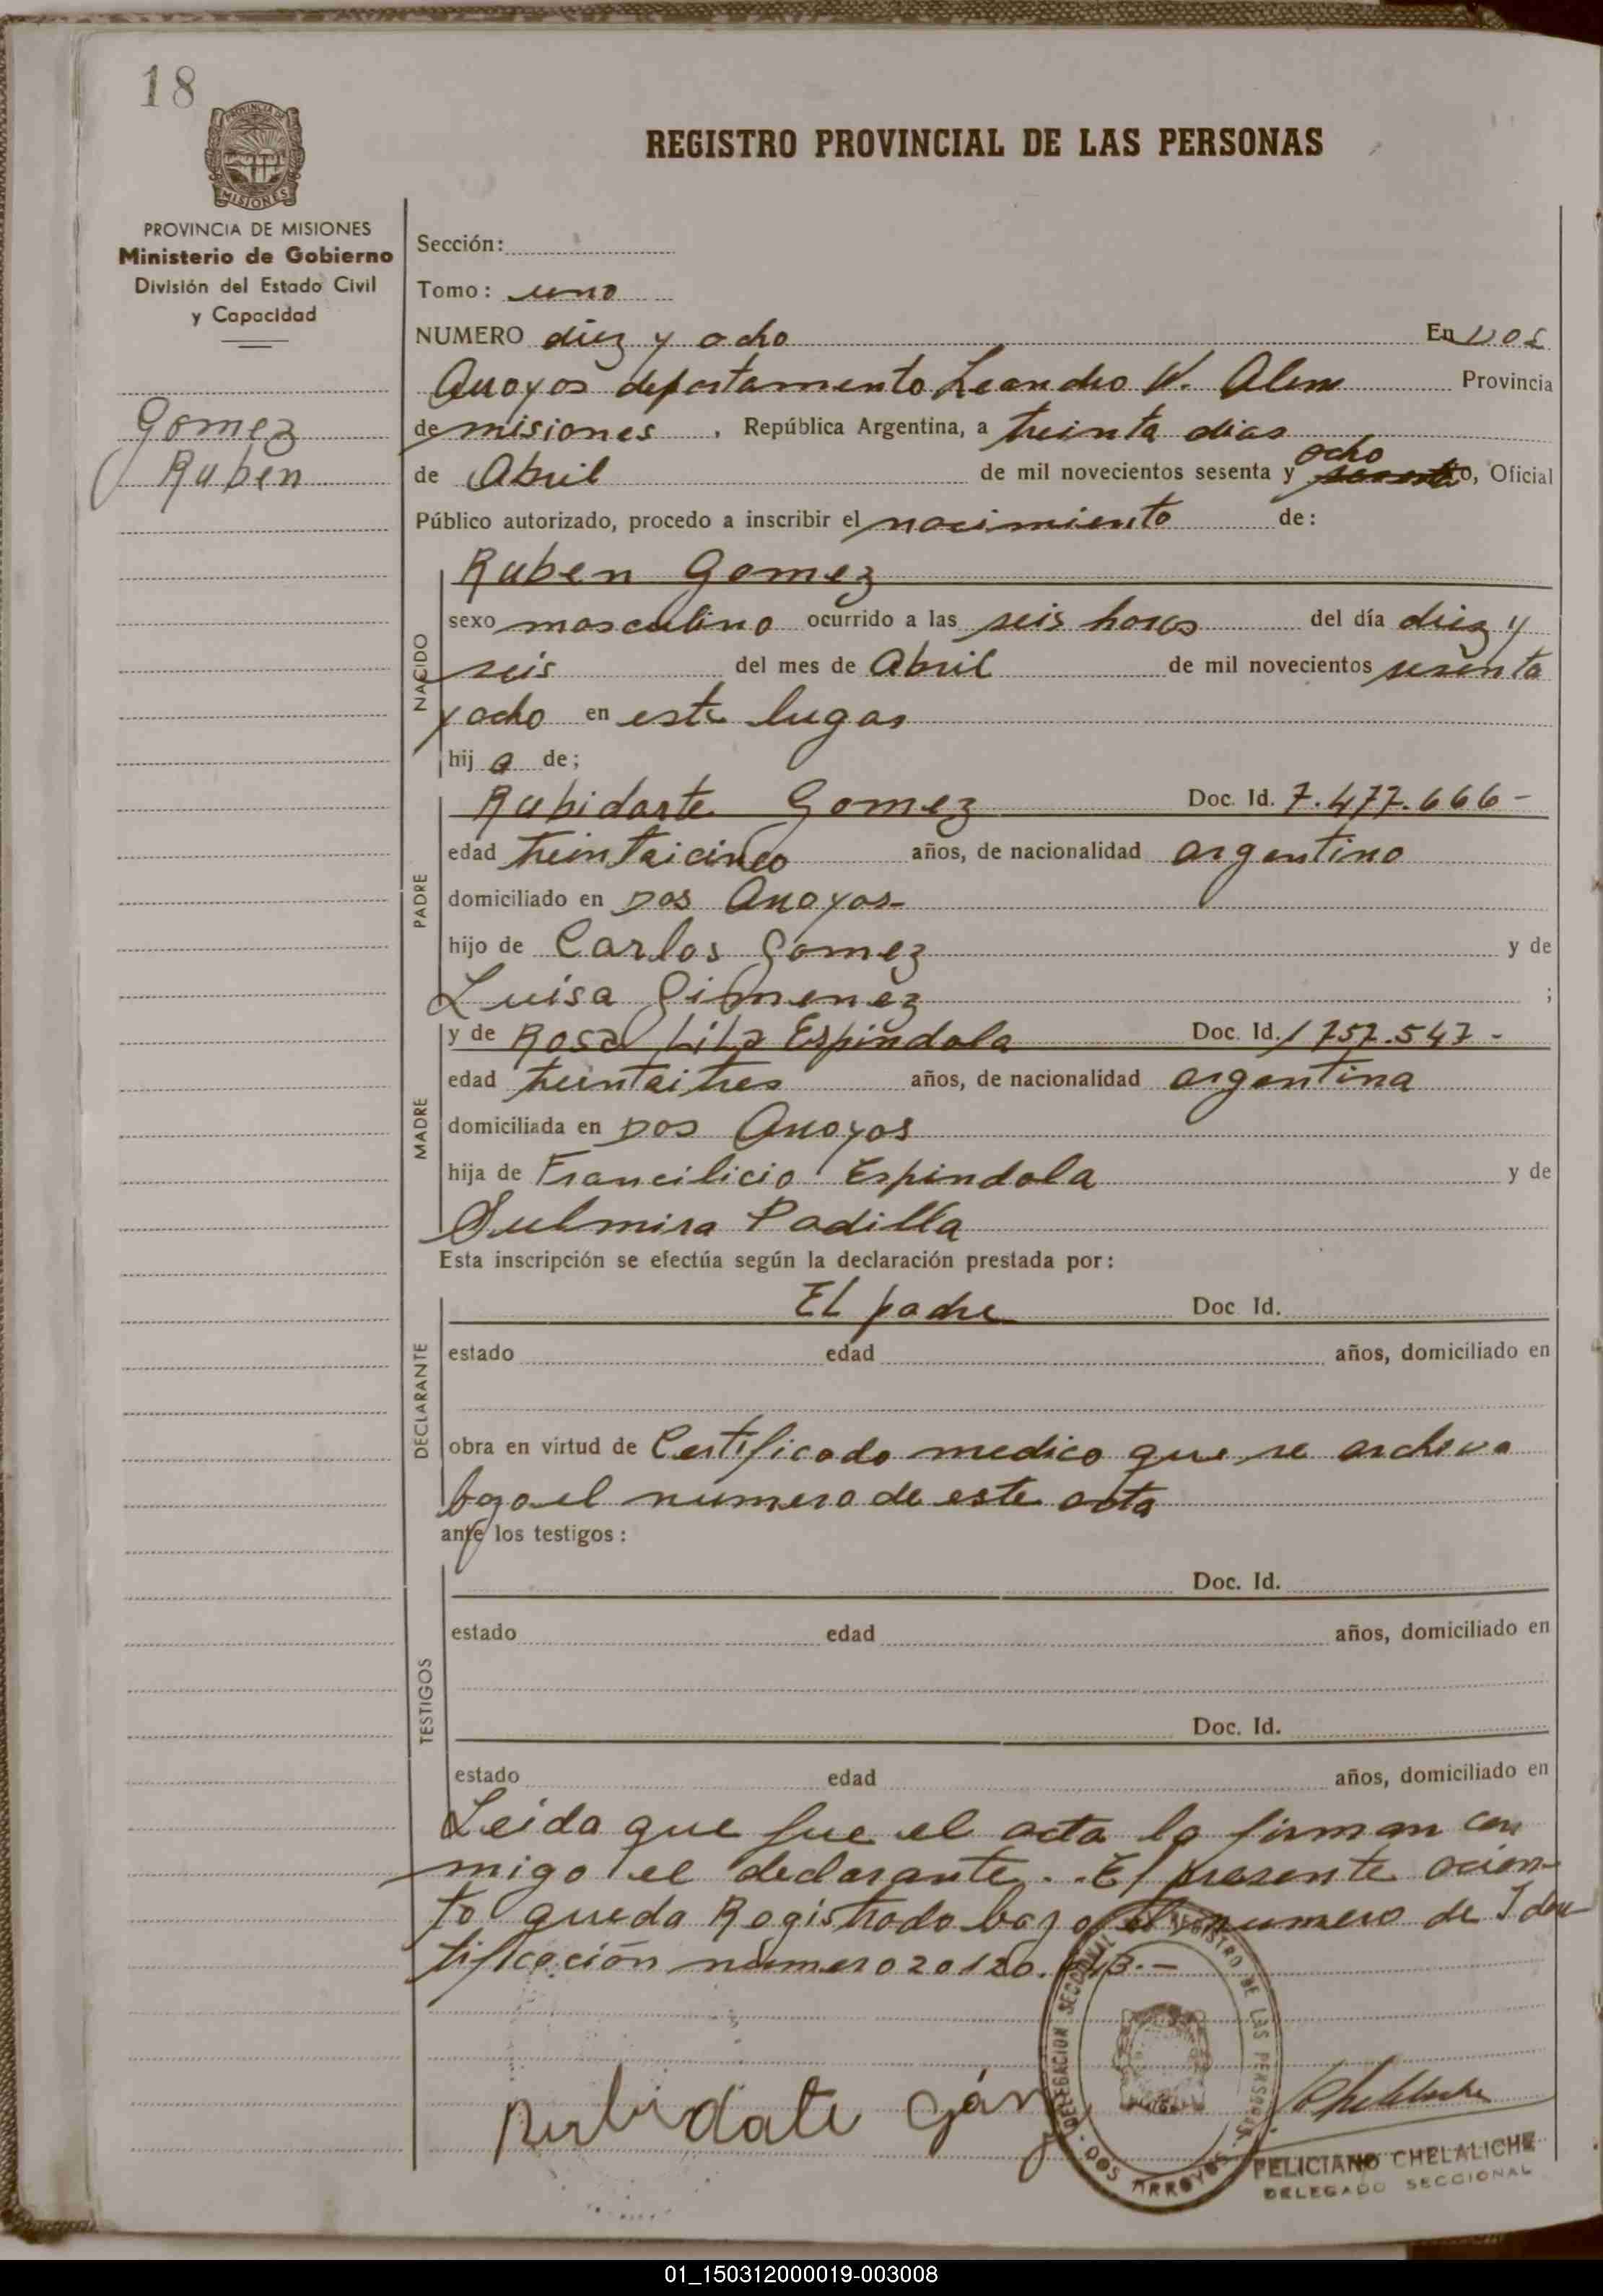 18
PROVINCIA DE
MISIONES
REGISTRO PROVINCIAL DE LAS PERSONAS
PROVINCIA DE MISIONES
Ministerio de Gobierno
División del Estado Civil
y Capacidad
Gomez
Ruben
Sección:
Tomo: uno
NUMERO diez y ocho En Dos
Arroyos departamento Leandro N. Alem Provincia
de misiones, República Argentina, a treinta dias
de Abril de mil novecientos sesenta y ocho, Oficial
Público autorizado, procedo a inscribir el nacimiento de:
NACIDO
Ruben Gomez
sexo masculino ocurrido a las seis horas del día diez y
seis del mes de Abril de mil novecientos sesenta
y ocho en este lugar
hij a de;
PADRE
Rubidarte Gomez Doc. Id. 7.477.666-
edad treintaicinco años, de nacionalidad argentino
domiciliado en Dos Arroyos-
hijo de Carlos Gomez y de
Luisa Gimenez ;
MADRE
y de Rosa Lila Espindola Doc. Id. 1757.547-
edad treintaitres años, de nacionalidad argentina
domiciliada en Dos Arroyos
hija de Francilicio Espindola y de
Sulmira Padilla
Esta inscripción se efectúa según la declaración prestada por:
DECLARANTE
El padre Doc Id.
estado edad años, domiciliado en
obra en virtud de Certificado medico que se archiva
bajo el numero de este acta
ante los testigos:
TESTIGOS
Doc. Id.
estado edad años, domiciliado en
Doc. Id.
estado edad años, domiciliado en
Leida que fue el acta la firman con
migo el declarante. El presente acien-
to queda Registrado bajo el numero de Iden
tificación número 20120.
Rubidate
DELEGACION SECCIONAL REGISTRO DE LAS PERSONAS
DOS ARROYOS
FELICIANO CHELALICHE
DELEGADO SECCIONAL
01_150312000019-003008